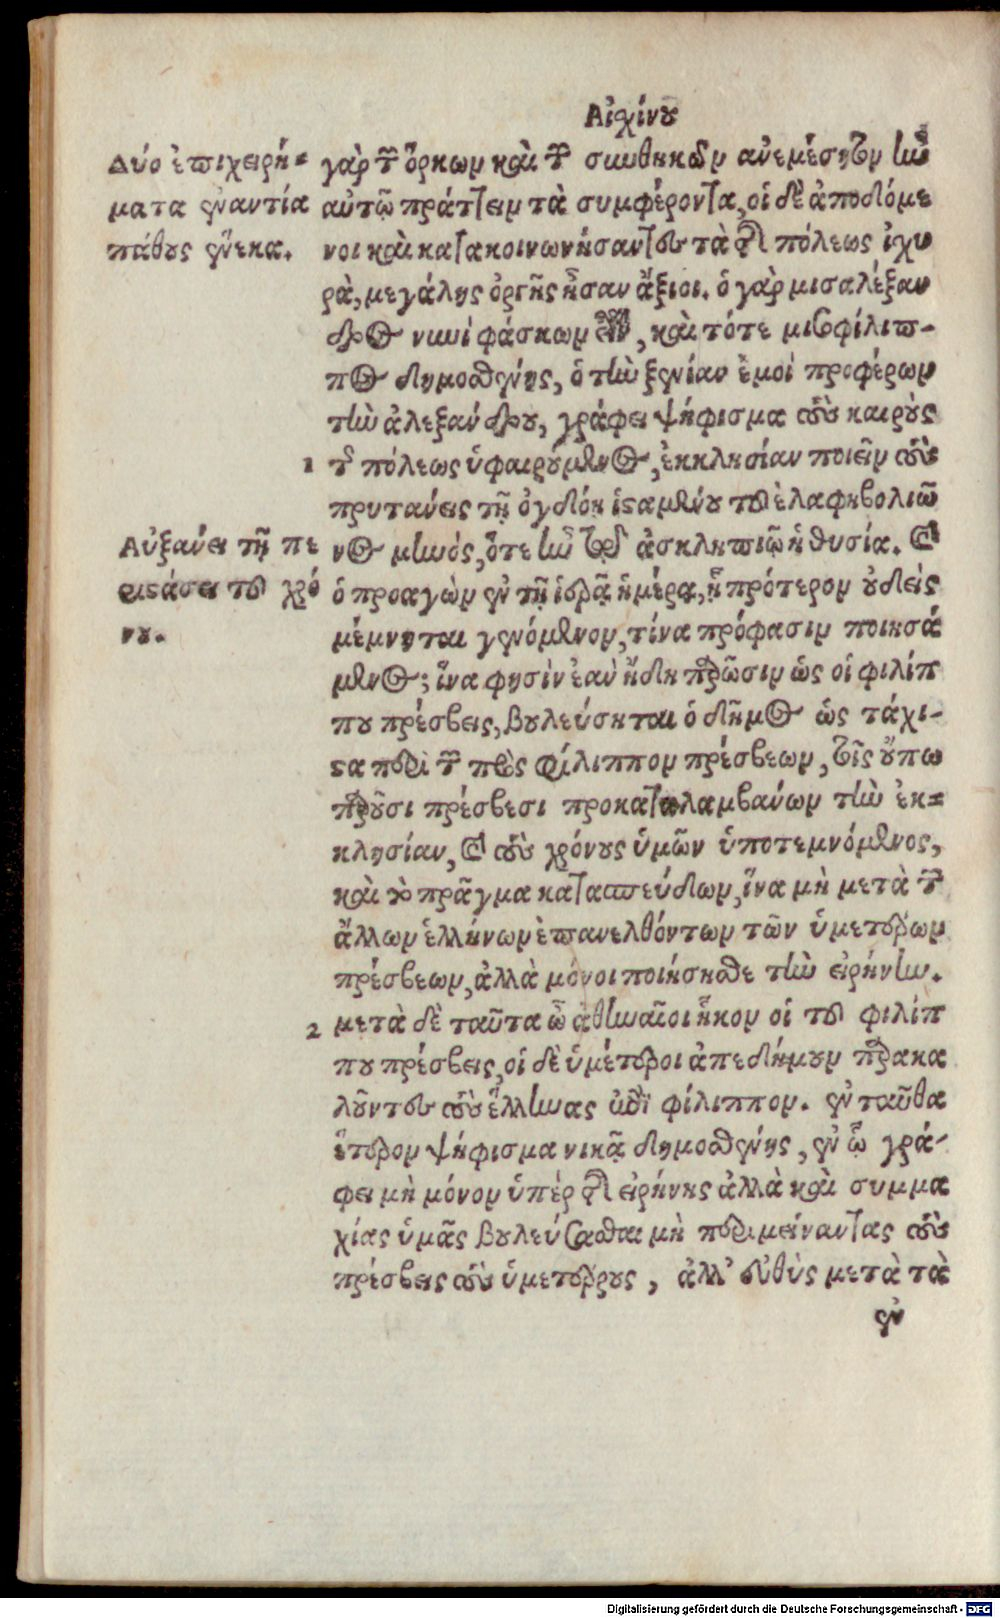 Αἰσχίνου
Δύο ἐπιχειρή=
ματα ἐναντία
πάθους ἕνεκα.
γὰρ τῶν ὅρκων καὶ τῶν συνθηκῶν ἀνεμέσητον ἦν
αὐτῷ πράττειν τὰ συμφέροντα, οἱ δὲ ἀποδόμε
νοι καὶ κατακοινωνήσαντες τὰ τῆς πόλεως ἰχυ
ρὰ, μεγάλης ὀργῆς ἦσαν ἄξιοι. ὁ γὰρ μισαλέξαν
δρος νυνὶ φάσκων εἶναι, καὶ τότε μισοφίλιπ-
πος δημοσθένης, ὁ τὴν ξενίαν ἐμοὶ προφέρων
τὴν ἀλεξάνδρου, γράφει ψήφισμα τοὺς καιροὺς
1 τῆς πόλεως ὑφαιρούμενος, ἐκκλησίαν ποιεῖν τοὺς
πρυτανεις τῇ ὀγδόῃ ἱσταμένου τοῦ ἐλαφηβολιῶ
Αὐξάνει τῇ πε
ριστάσει τοῦ χρό
νου.
νος μηνός, ὅτε ἦν τῷ ἀσκληπιῷ ἡ θυσία. καὶ
ὁ προαγὼν ἐν τῇ ἱερᾷ ἡμέρᾳ, ἣ πρότερον οὐδεὶς
μέμνηται γενόμενον, τίνα πρόφασιν ποιησά
μενος; ἵνα φησὶν ἐὰν ἤδη παρῶσιν ὡς οἱ φιλίπ
που πρέσβεις, βουλεύσηται ὁ δῆμος ὡς τάχι-
στα περὶ τῶν πρὸς φίλιππον πρέσβεων, τοῖς οὔπω
παροῦσι πρέσβεσι προκαταλαμβάνων τὴν ἐκ=
κλησίαν, καὶ τοὺς χρόνους ὑμῶν ὑποτεμνόμενος,
καὶ τὸ πρᾶγμα κατασπεύδων, ἵνα μὴ μετὰ τῶν
ἄλλων ἑλλήνων ἐπανελθόντων τῶν ὑμετέρων
πρέσβεων, ἀλλὰ μόνοι ποιήσησθε τὴν εἰρήνην.
2 μετὰ δὲ ταῦτα ὦ ἀθηναῖοι ἧκον οἱ τοῦ φιλίπ
που πρέσβεις, οἱ δὲ ὑμέτεροι ἀπεδήμουν παρακα
λοῦντες τοὺς ἕλληνας ἐπὶ φίλιππον. ἐνταῦθα
ἕτερον ψήφισμα νικᾷ δημοσθένης, ἐν ᾧ γρά-
φει μὴ μόνον ὑπὲρ τῆς εἰρήνης ἀλλὰ καὶ συμμα
χίας ὑμᾶς βουλεύσασθαι μὴ περιμείναντας τοὺς
πρέσβεις τοὺς ὑμετέρους, ἀλλ' εὐθὺς μετὰ τὰ
ἐν
Digitalisierung gefördert durch die Deutsche Forschungsgemeinschaft - DFG